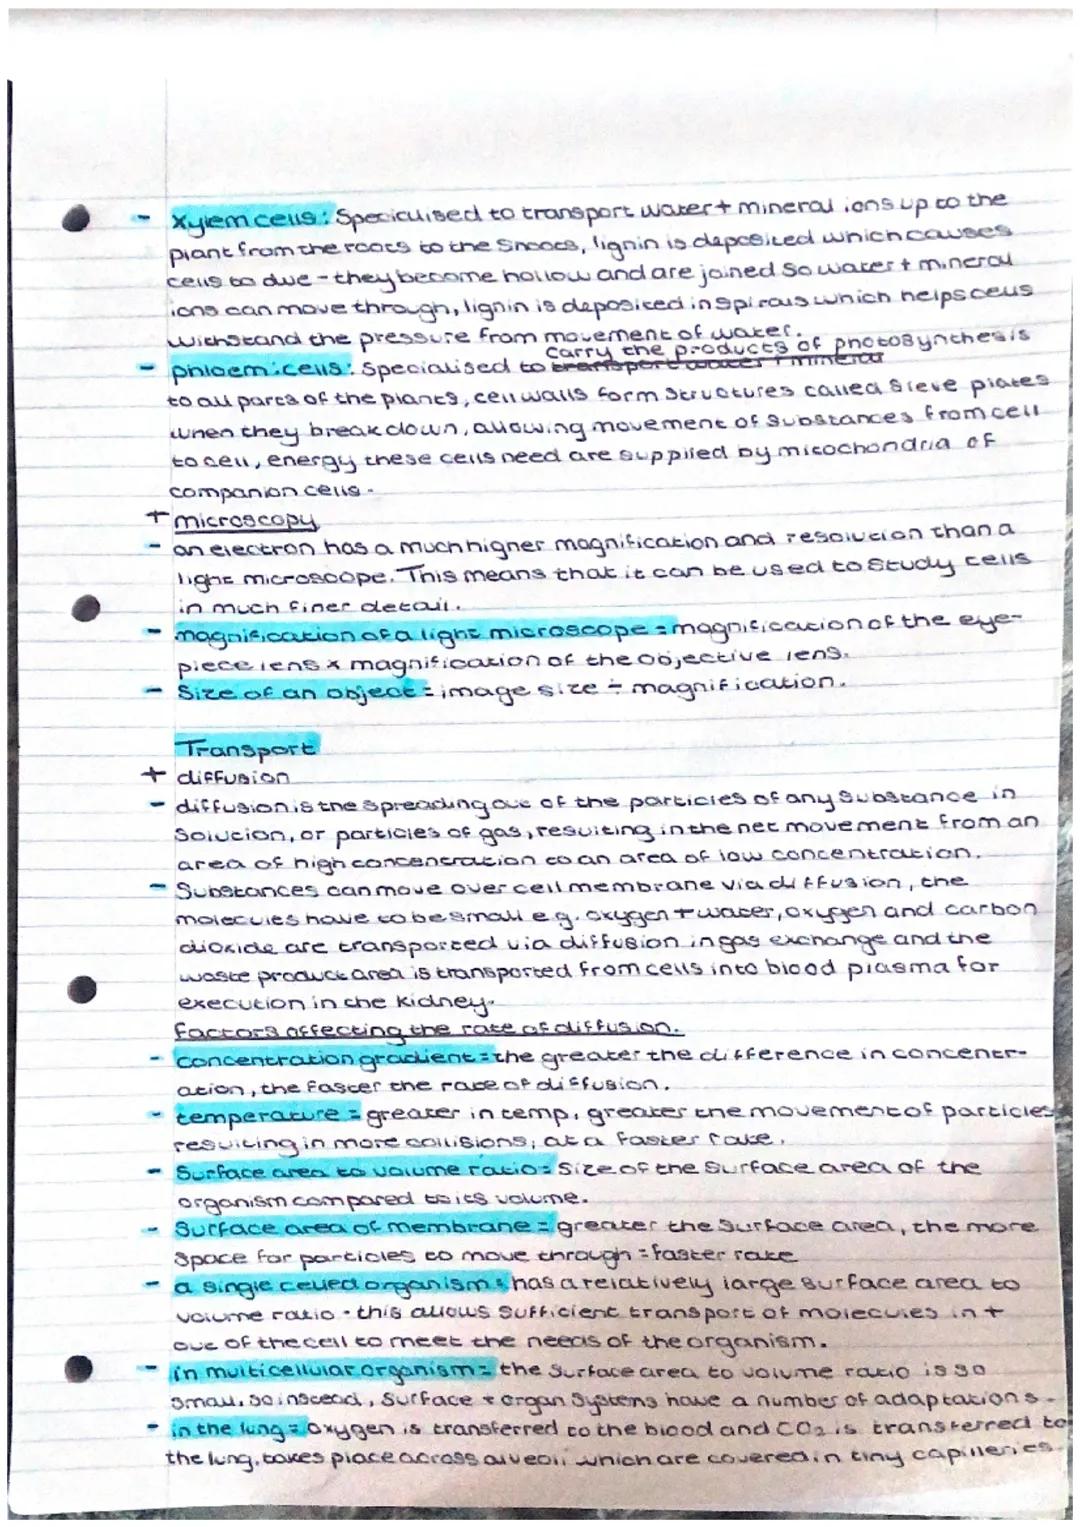 - Xylem cells: Specialised to transport water + mineral ions up to the
plant from the roots to the shoots, lignin is deposited which causes
cells to due - they become hollow and are joined so water + mineral
ions can move through, lignin is deposited in spirals which helps cells
withstand the pressure from movement of water.
carry the products of photosynthesis
- phloem cells: Specialised to transport water + mineral
to all parts of the plants, cell walls form structures called sieve plates
when they break down, allowing movement of substances from cell
to cell, energy these cells need are supplied by mitochondria of
companion cells.
+ microscopy
- an electron has a much higher magnification and resolution than a
light microscope. This means that it can be used to study cells
in much finer detail.
- magnification of a light microscope = magnification of the eye-
piece lens x magnification of the objective lens.
- Size of an object = image size ÷ magnification.
Transport
+ diffusion
- diffusion is the spreading out of the particles of any substance in
solution, or particles of gas, resulting in the net movement from an
area of high concentration to an area of low concentration.
- Substances can move over cell membrane via diffusion, the
molecules have to be small e.g. oxygen + water, oxygen and carbon
dioxide are transported via diffusion in gas exchange and the
waste product area is transported from cells into blood plasma for
execution in the kidney.
factors affecting the rate of diffusion.
- Concentration gradient = the greater the difference in concentr-
ation, the faster the rate of diffusion.
- temperature = greater in temp, greater the movement of particles
resulting in more collisions, at a faster rate.
- Surface area to volume ratio = Size of the surface area of the
organism compared to its volume.
- Surface area of membrane = greater the surface area, the more
space for particles to move through = faster rate
- a single celled organism = has a relatively large surface area to
volume ratio - this allows sufficient transport of molecules in +
out of the cell to meet the needs of the organism.
- in multicellular organism = the surface area to volume ratio is so
small, so instead, surface + organ systems have a number of adaptations.
- in the lung = oxygen is transferred to the blood and CO2 is transferred to
the lung. takes place across alveoli which are covered in tiny capilleries